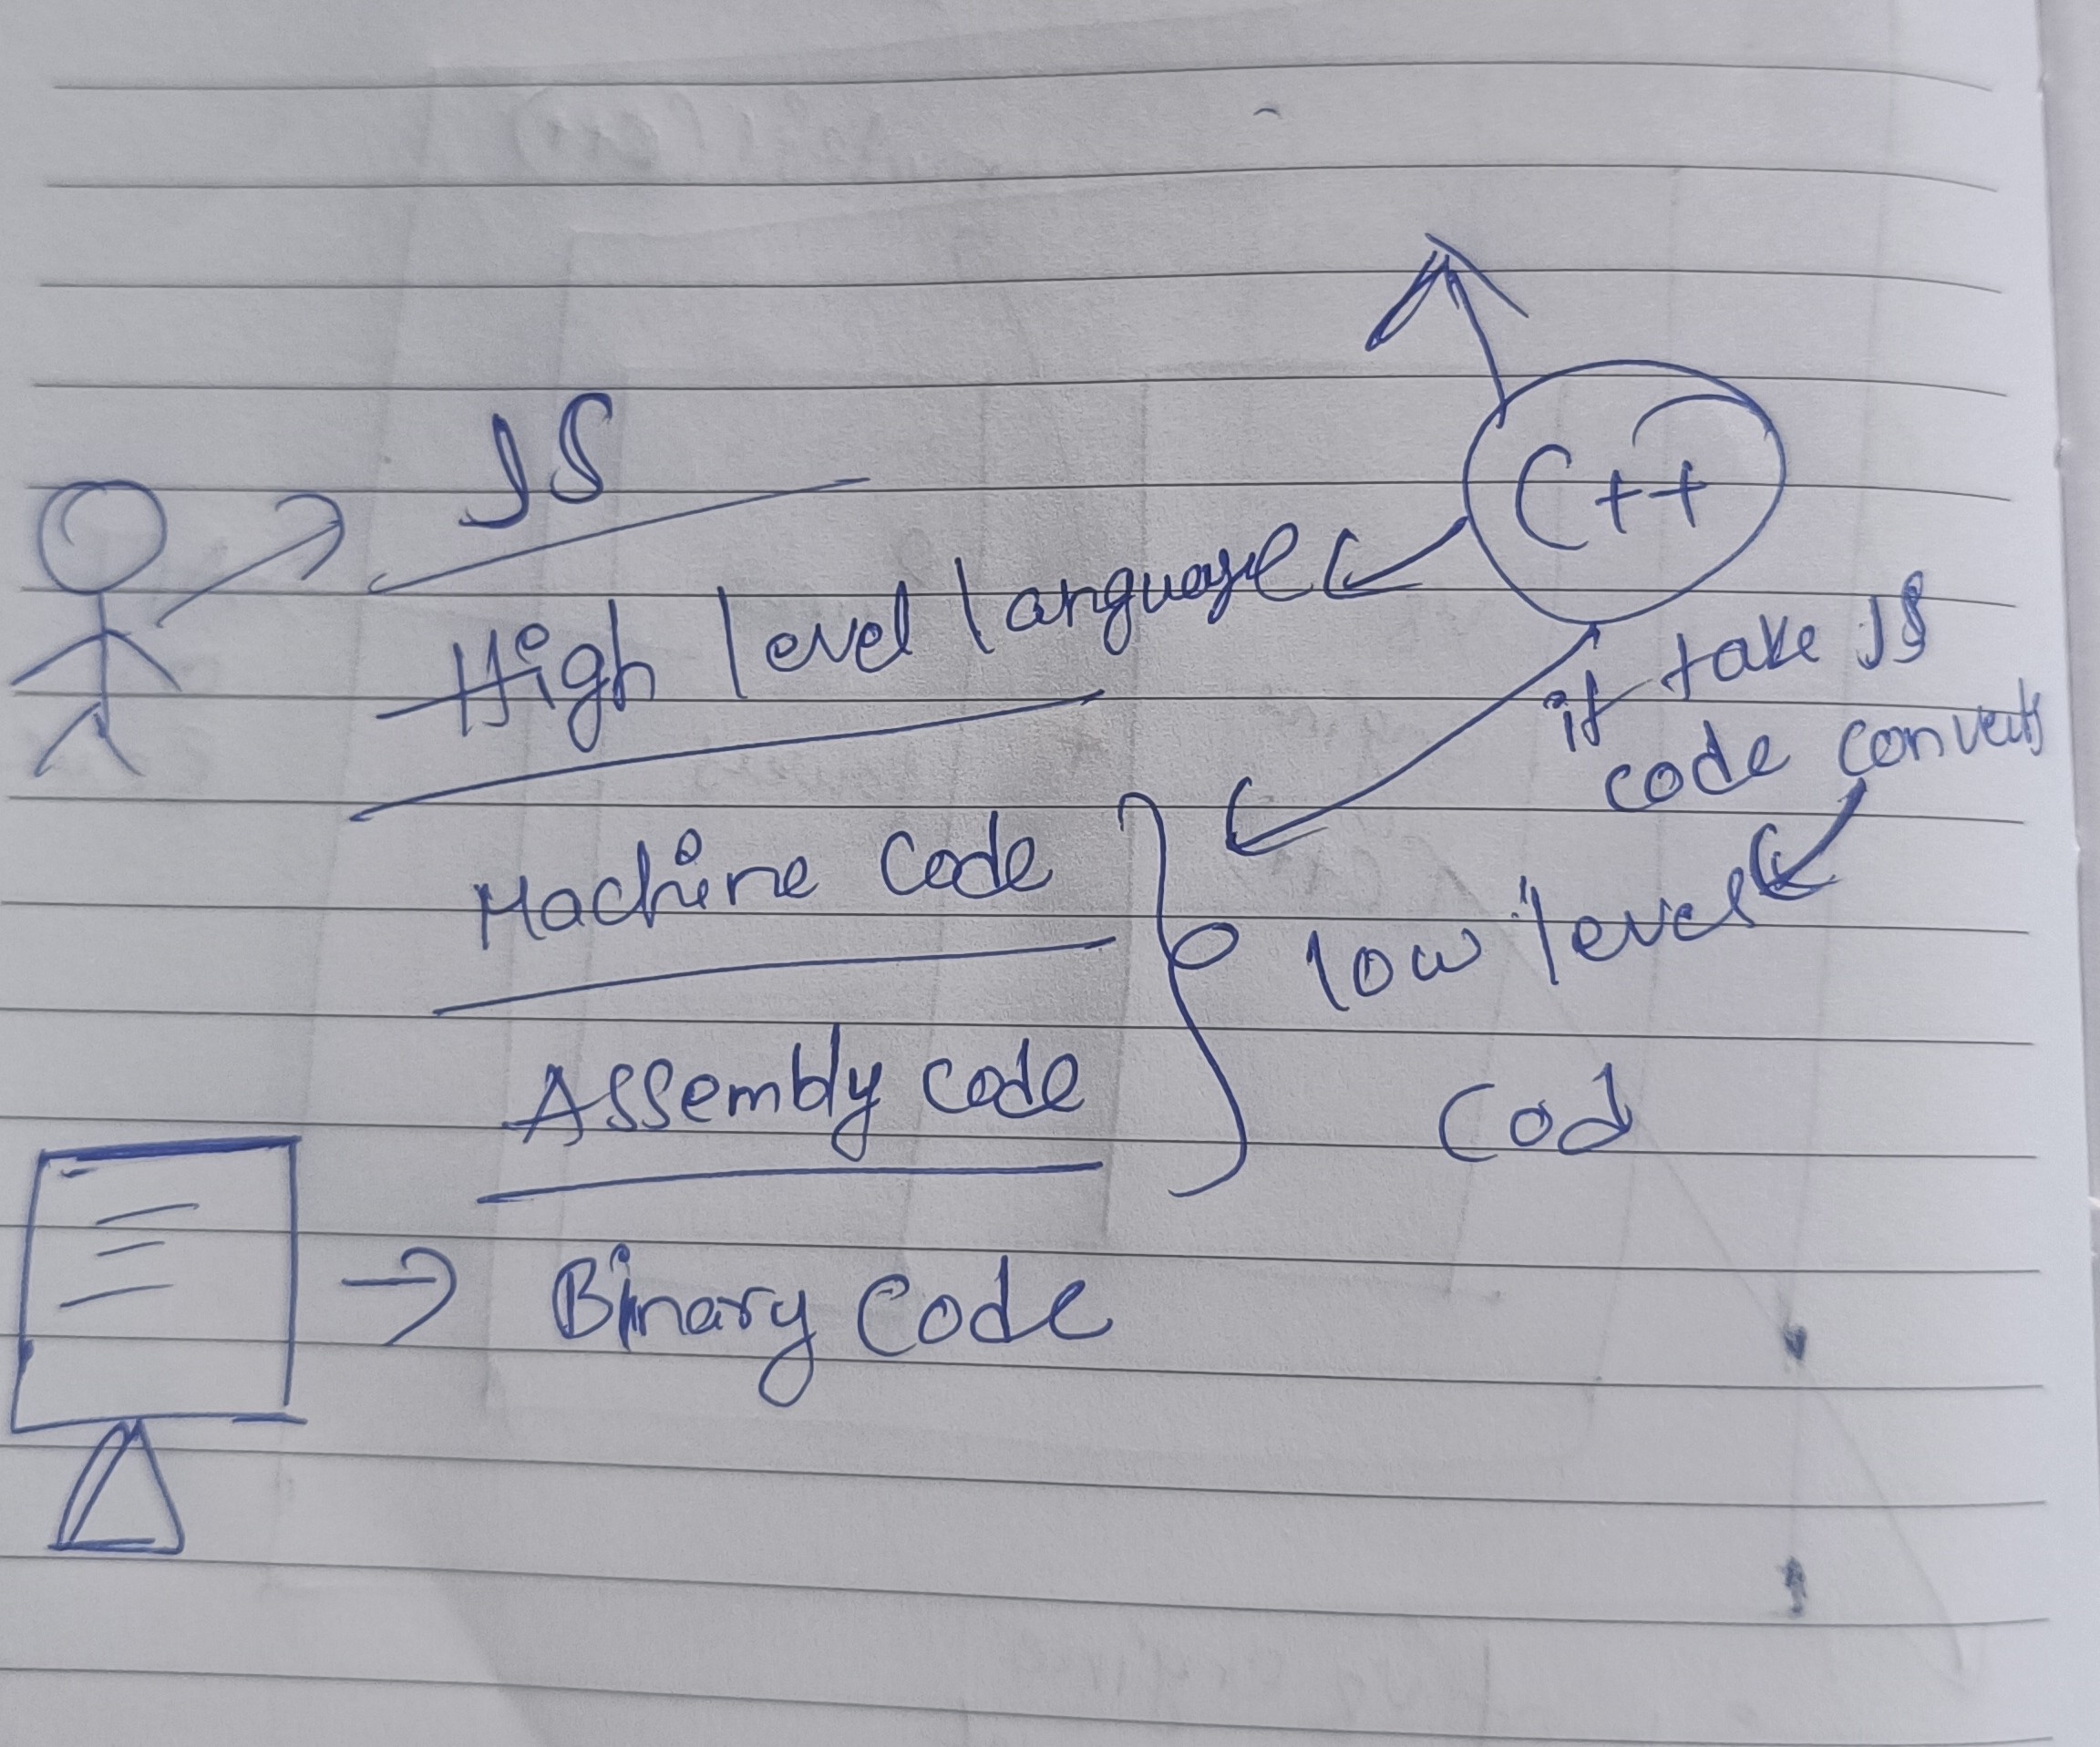 JS
C++
High level language
it take JS
code converts
Machine Code
low level
Assembly code
Cod
Binary Code